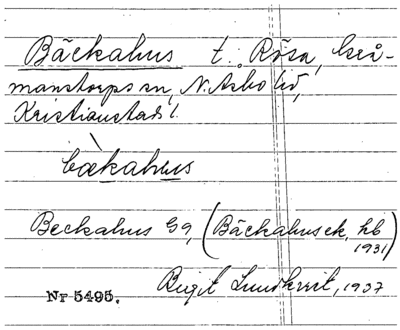 Bäckahus t. Rösa, Grå-
manstorps sn, N. Åsbo hd,
Kristianstads l.
bækahus
Beckahus Ga, (Bäckahus ek. kb
1931)
Birgit Lundkvist, 1937
Nr 5495.